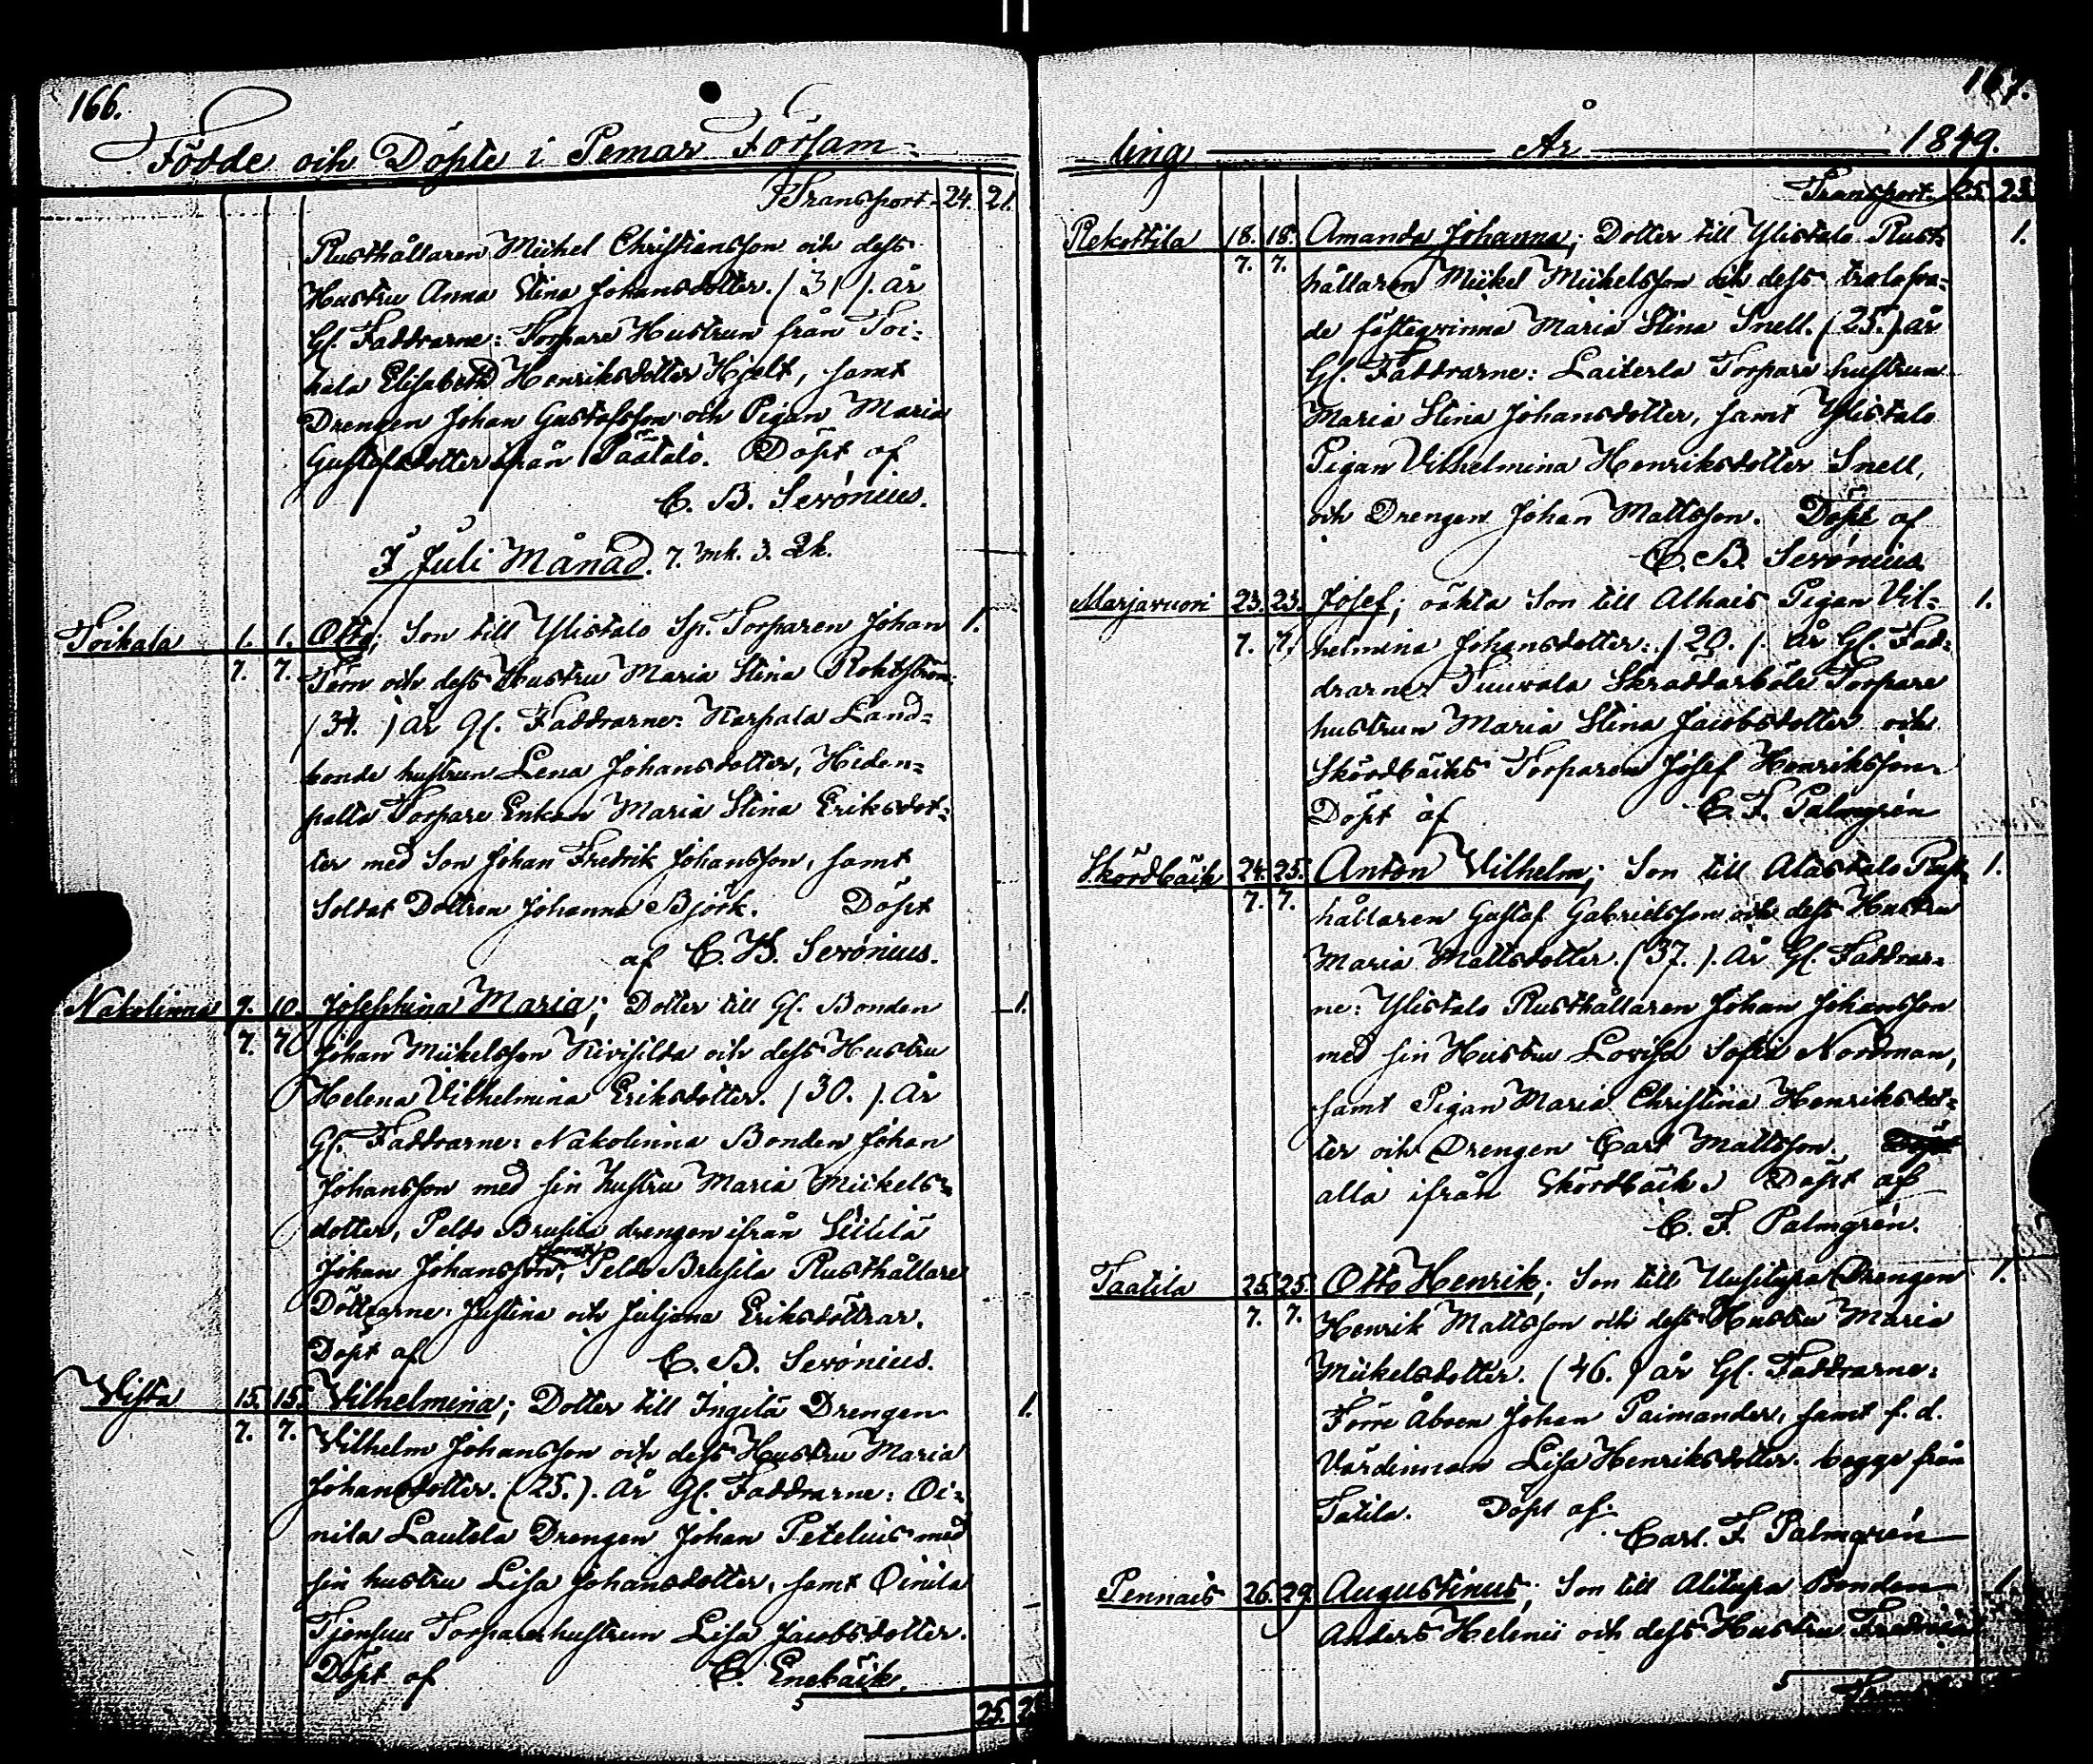 166.
Födde och Döpte i Pemar Försam-
Transport 24. 21.
Rusthållaren Mickel Christiansson och dess
Hustru Anna Stina Johansdotter. (31). år
Gl. Faddrarne: Torpare Hustrun från Toi-
kala Elisabeth Henriksdotter Hjelt, samt
Drengen Johan Gustafsson och Pigan Maria
Gustafsdotter ifrån Päätalo. Döpt af
C. B. Serónius.
I Juli Månad. 7. Mk. 3. Qk.
Toikala 1. 1. Otto; Son till Ylistalo Sp. Torparen Johan 1.
7. 7. Törn och dess Hustru Maria Stina
(34.) år Gl. Faddrarne: Karpala Land-
bonde hustrun Lena Johansdotter, Hiden-
palta Torpare Enkan Maria Stina Eriksdot-
ter med Son Johan Fredrik Johansson, samt
Soldat Dottren Johanna Björk. Döpt
af C. B. Serónius.
Nakolinna 9. 10. Josephina Maria; Dotter till Gl. Bonden 1.
7. 7. Johan Mickelsson Kirisilda och dess Hustru
Helena Vilhelmina Eriksdotter. (30.). år
Gl. Faddrarne: Nakolinna Bonden Johan
Johansson med sin hustru Maria Mickels-
dotter, Peldo Brusila drengen ifrån
Johan Johansson, samt Peldo Brusila Rusthållare
Döttrarne: Justina och Juljana Eriksdöttrar.
Döpt af C. B. Serónius.
Wista 15. 15. Vilhelmina; Dotter till Ingilä Drengen 1.
7. 7. Vilhelm Johansson och dess Hustru Maria
Johansdotter. (25.). år Gl. Faddrarne: Oi-
nila Lautela Drengen Johan Petelius med
sin hustru Lisa Johansdotter, samt Oinila
Tjonsuu Torparehustrun Lisa Jacobsdotter.
Döpt af C. Enebäck.
25.
167.
ling År 1849.
Transport 25. 23.
Rekottila 18. 18. Amanda Johanna; Dotter till Ylistalo Rust- 1.
7. 7. hållaren Mickel Mickelsson och dess trolofva-
de fästeqvinna Maria Stina Snell. (25.) år
Gl. Faddrarne: Laiterla Torpare hustrun
Maria Stina Johansdotter, samt Ylistalo
Pigan Vilhelmina Henriksdotter Snell,
och Drengen Johan Mattsson. Döpt af
C. B. Serónius.
Marjavuori 23. 23. Josef; oäkta Son till Alhais Pigan Vil- 1.
7. 7. helmina Johansdotter. (20.). år Gl. Fad-
drarne: Tuuvola Skraddarböle Torpare
hustrun Maria Stina Jacobsdotter och
Skördbäcks Torparen Josef Henriksson.
Döpt af C. F. Palmgrén
Skördbäck 24. 25. Anton Vilhelm; Son till Alastalo Rust- 1.
7. 7. hållaren Gustaf Gabrielsson och dess Hustru
Maria Mattsdotter. (37.). år Gl. Faddrar-
ne: Ylistalo Rusthållaren Johan Johansson
med sin Hustru Lovisa Sofia Nordman,
samt Pigan Maria Christina Henriksdot-
ter och Drengen Carl Mattsson. Döpt
alla ifrån Skördbäck. Döpt af
C. F. Palmgrén.
Taatila 25. 25. Otto Henrik; Son till Uusitupa Drengen 1.
7. 7. Henrik Mattsson och dess Hustru Maria
Mickelsdotter. (46.) år Gl. Faddrarne:
Förre Åboen Johan Paimander, samt f. d.
Värdinnan Lisa Henriksdotter. begge från
Tatila. Döpt af.
Carl. F. Palmgrén
Pennais 26. 29. Augustinus; Son till Alitupa Bonden 1.
Anders Helenii och dess Hustru